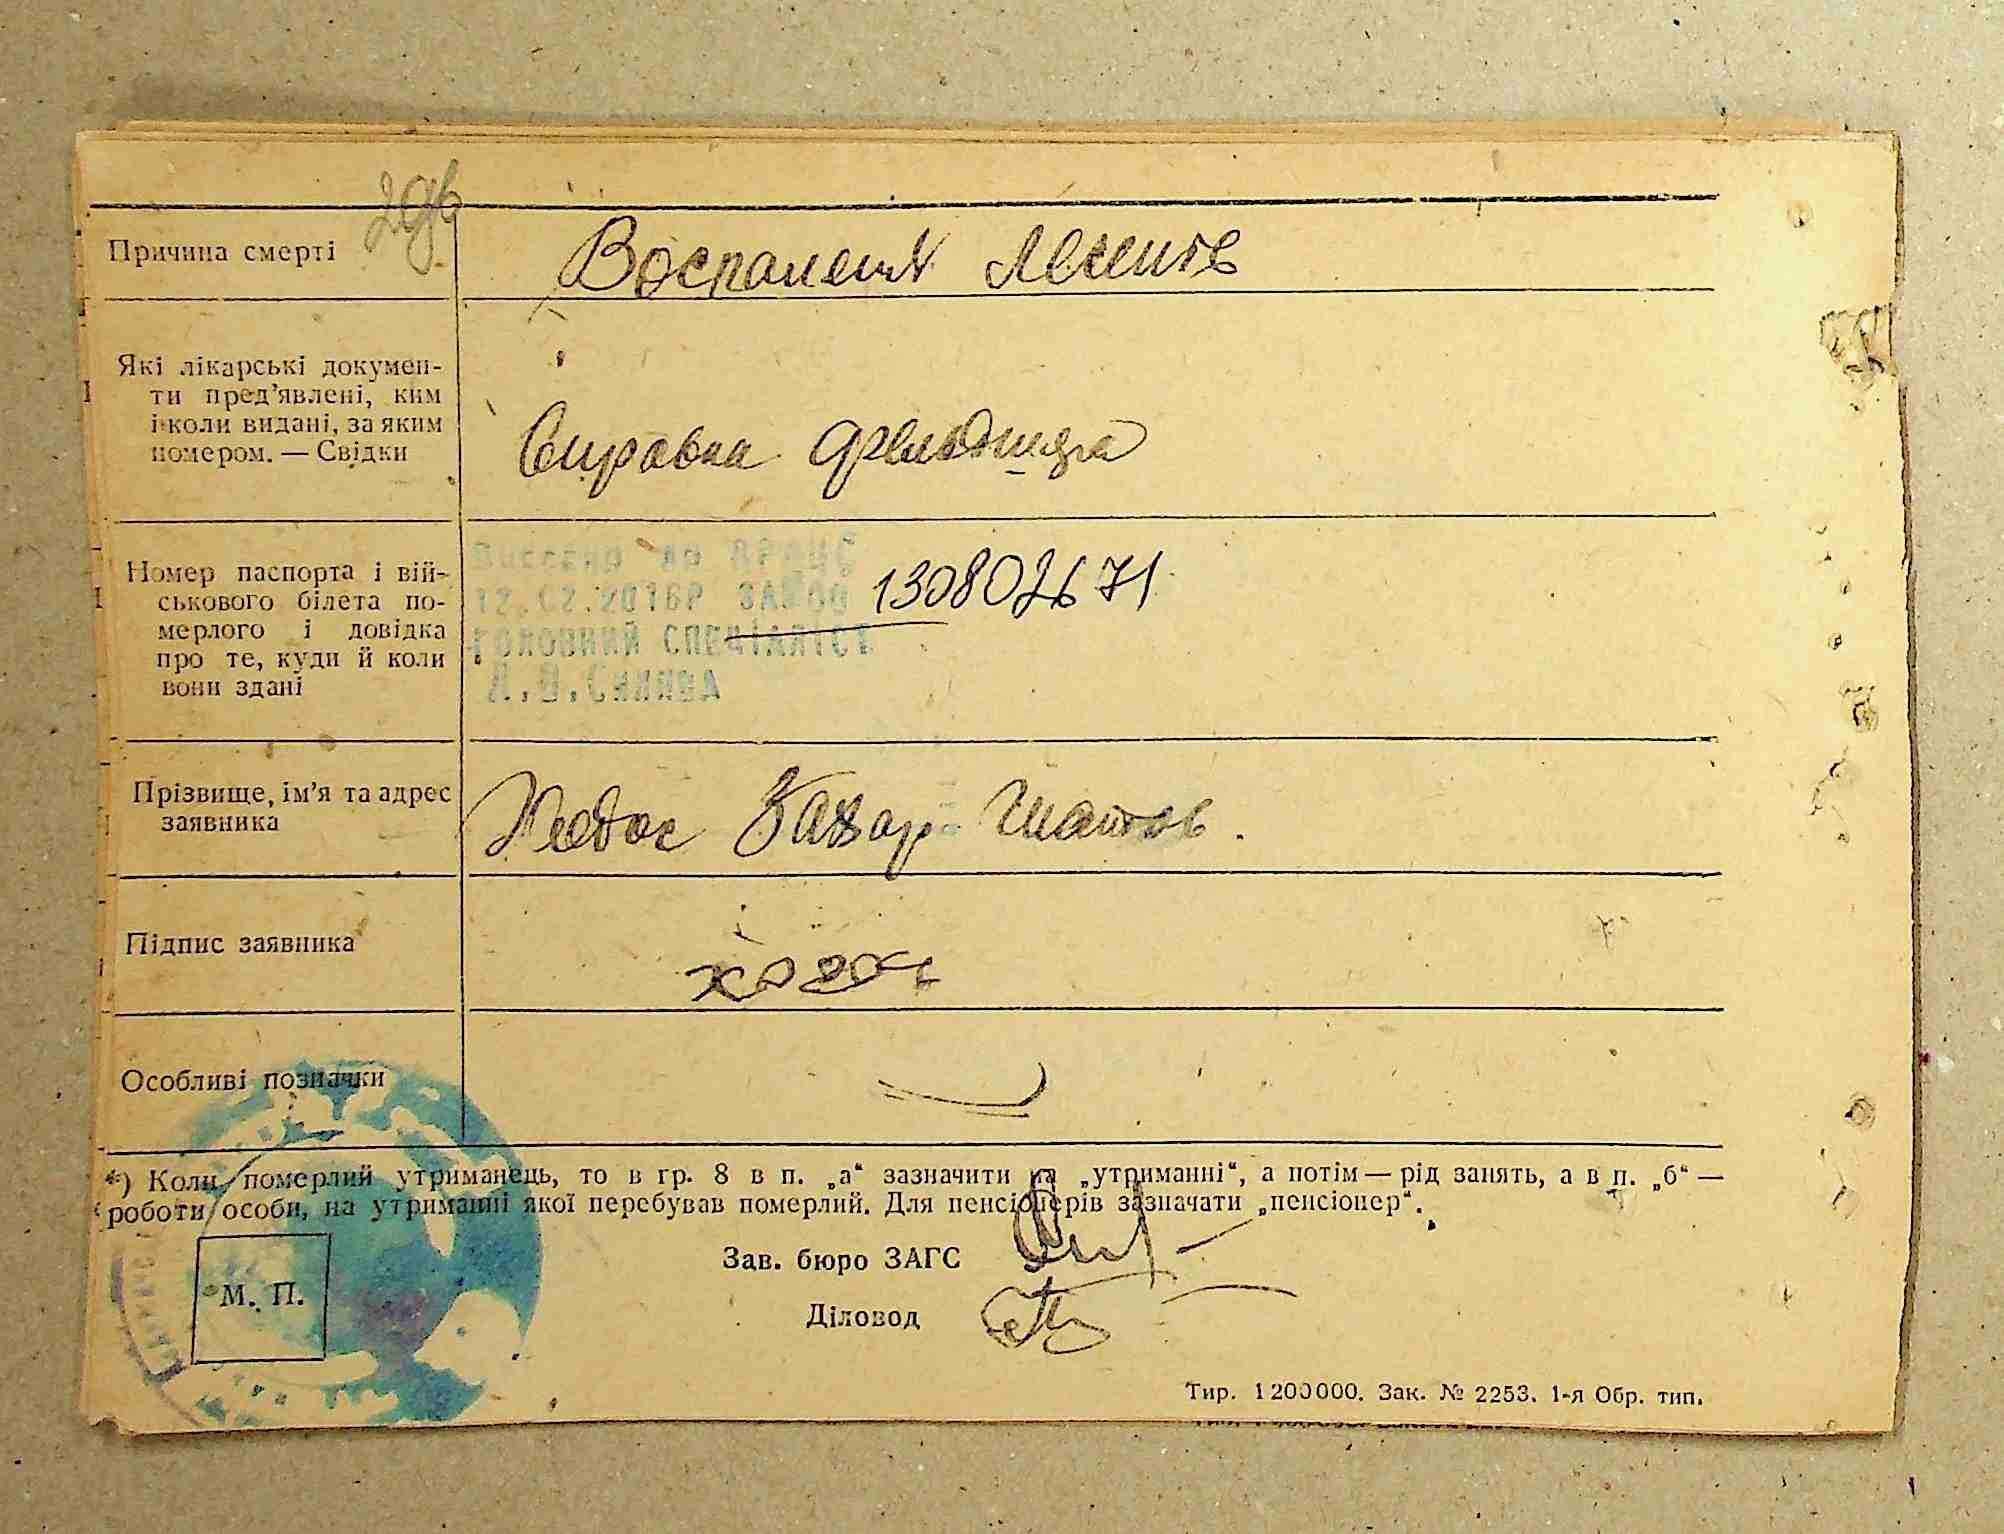 Причина смерти
Воспаления легких
Які лікарські докумен-
ти пред’явлені, ким
і коли видані, за яким
номером. — Свідки
Справка фельдшера
Номер паспорта і вій-
ськового білета по-
мерлого і довідка
про те, куди й коли
вони здані
Внесено до ДРАЦС
12.02.2016Р ЗА №00
130802671
ГОЛОВНИЙ СПЕЦІАЛІСТ
Прізвище, ім’я та адрес
заявника
Назар
Підпис заявника
Особливі позначки
*) Коли померлий утриманець, то в гр. 8 в п. „а“ зазначити на „утриманні“, а потім — рід занять, а в п. „б“ —
роботи особи, на утриманні якої перебував померлий. Для пенсіонерів зазначати „пенсіонер“.
Зав. бюро ЗАГС
М. П.
Діловод
Тир. 1200000. Зак. № 2253. 1-я Обр. тип.